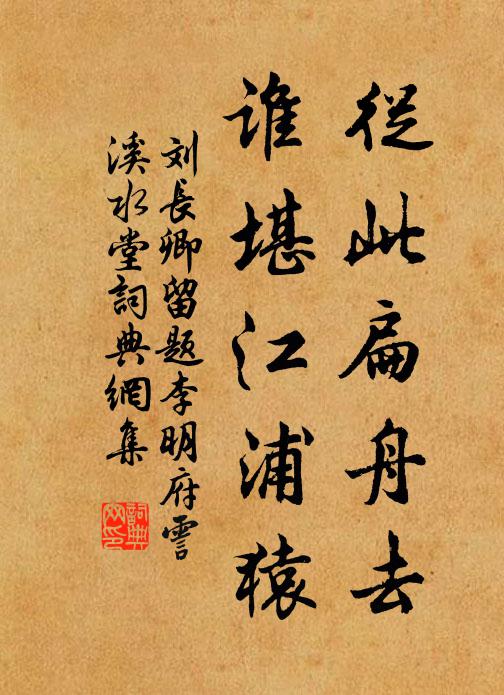 從此扁舟去
誰堪江浦猿
刘長卿留題李明府霅
溪水堂詞典網集
詞典
网印